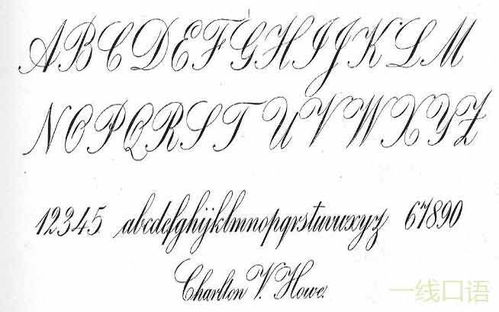 ABCDEFGHIJKLM
NOPQRSTUVWXYZ
12345 abcdefghijklmnopqrstuvwxyz 67890
Charlton V. Howe.
一线口语